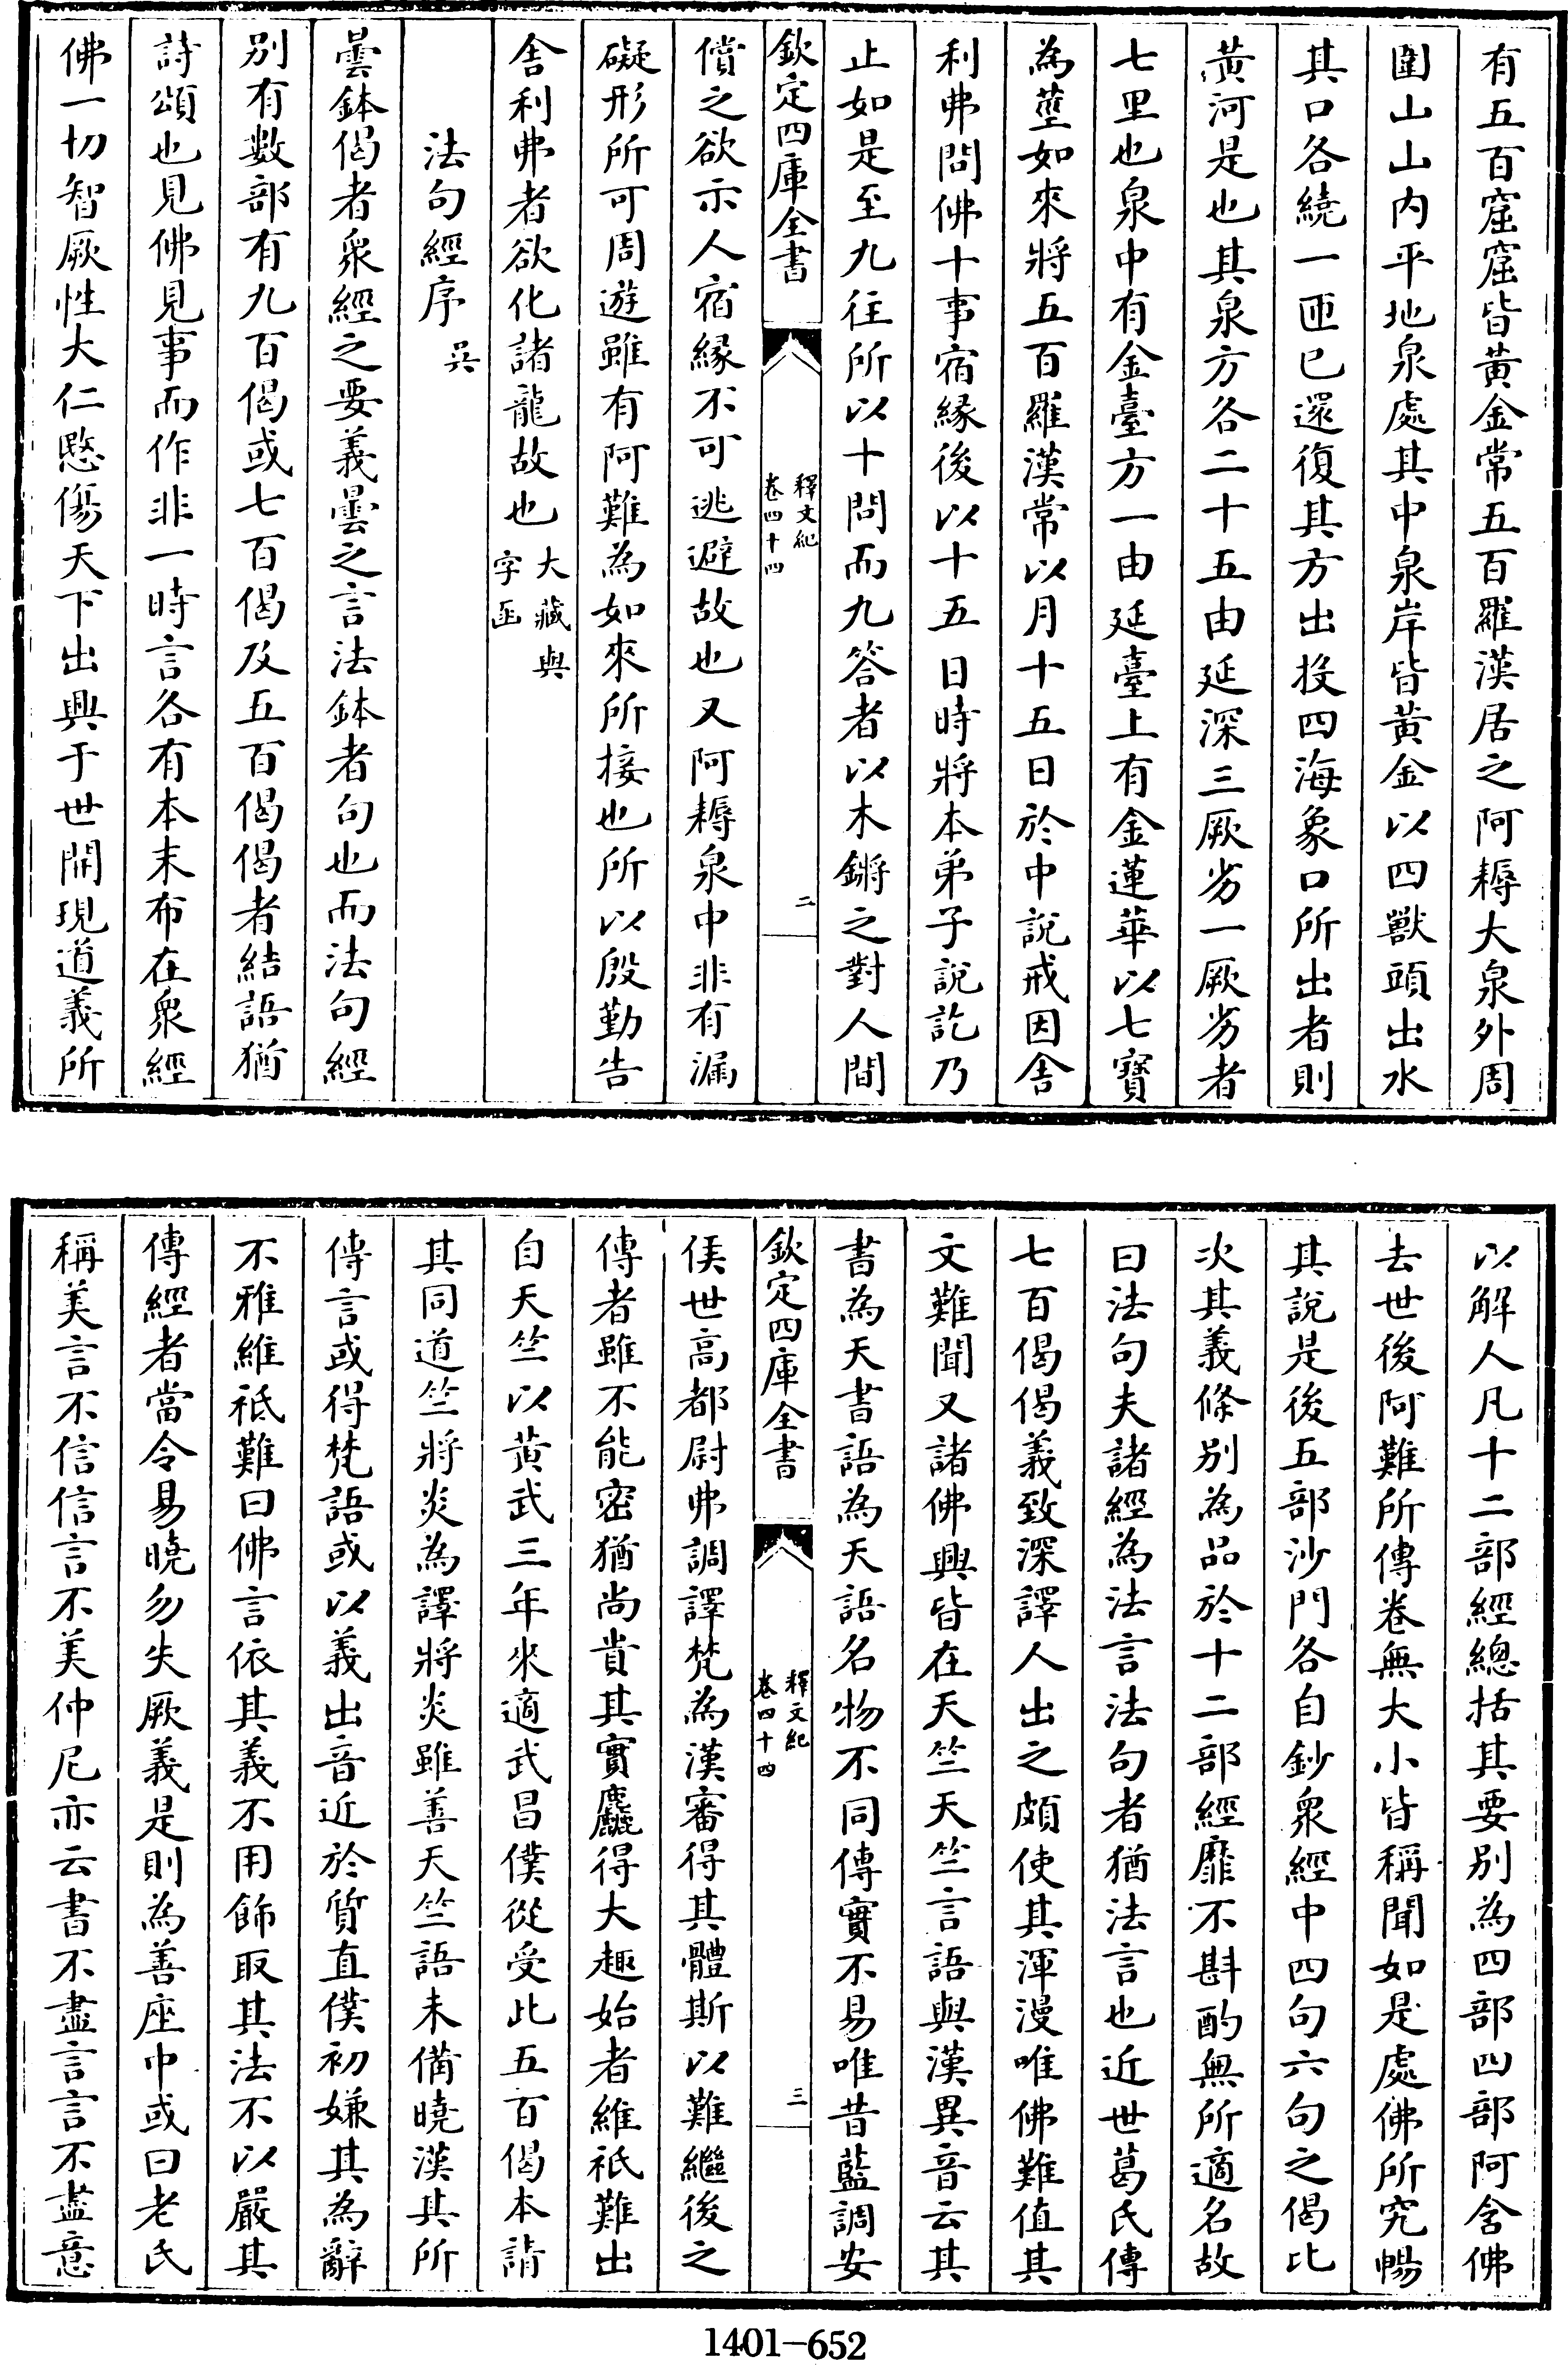 有五百窟窟皆黃金常五百羅漢居之阿耨大泉外周
圍山山內平地泉處其中泉岸皆黃金以四獸頭出水
其口各繞一匝已還復其方出投四海象口所出者則
黃河是也其泉方各二十五由延深三厥劣一厥劣者
七里也泉中有金臺方一由延臺上有金蓮華以七寶
為莖如來將五百羅漢常以月十五日於中說戒因舍
利弗問佛十事宿緣後以十五日時將本弟子說訖乃
止如是至九往所以十問而九答者以木鏘之對人間
欽定四庫全書
釋文紀
卷四十四
二
償之欲示人宿緣不可逃避故也又阿耨泉中非有漏
礙形所可周遊雖有阿難為如來所接也所以殷勤告
舍利弗者欲化諸龍故也
大藏與
字函
法句經序 吳
曇鉢偈者衆經之要義曇之言法鉢者句也而法句經
別有數部有九百偈或七百偈及五百偈偈者結語猶
詩頌也見佛見事而作非一時言各有本末布在衆經
佛一切智厥性大仁愍傷天下出興于世開現道義所
以解人凡十二部經總括其要別為四部四部阿含佛
去世後阿難所傳卷無大小皆稱聞如是處佛所究暢
其說是後五部沙門各自鈔衆經中四句六句之偈比
次其義條別為品於十二部經靡不斟酌無所適名故
曰法句夫諸經為法言法句者猶法言也近世葛氏傳
七百偈偈義致深譯人出之頗使其渾漫唯佛難值其
文難聞又諸佛興皆在天竺天竺言語與漢異音云其
書為天書語為天語名物不同傳實不易唯昔藍調安
欽定四庫全書
釋文紀
卷四十四
三
侯世高都尉弗調譯梵為漢審得其體斯以難繼後之
傳者雖不能密猶尚貴其實麤得大趣始者維祇難出
自天竺以黃武三年來適武昌僕從受此五百偈本請
其同道竺將炎為譯將炎雖善天竺語未備曉漢其所
傳言或得梵語或以義出音近於質直僕初嫌其為辭
不雅維祇難曰佛言依其義不用飾取其法不以嚴其
傳經者當令易曉勿失厥義是則為善座中或曰老氏
稱美言不信信言不美仲尼亦云書不盡言言不盡意
1401-652